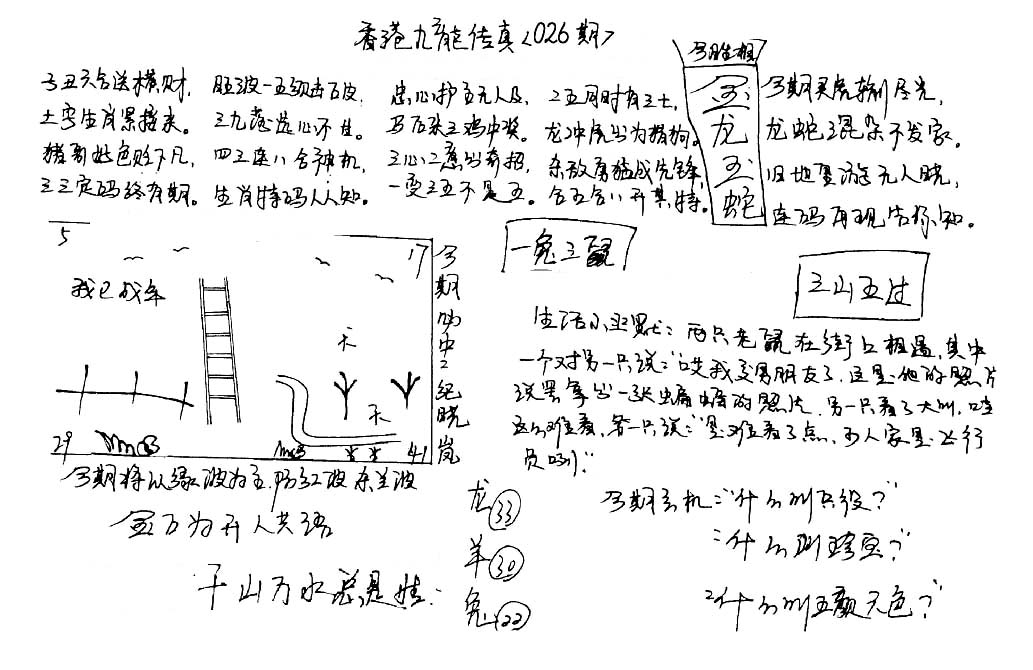 香港九龙传真<026期>
今生肖相
子丑六合送横财，
旺波一五须击破，
忠心护主无人及，
二五同时有三土，
土字生肖紧接来。
三九落选心不佳。
马后杂三鸡中奖。
龙冲虎出为猪狗。
猪哥好色贬下凡，
四三连八合神机，
三心二意出奇招，
杀敌勇猛战先锋，
三三定码终有期。
生肖特码人人知。
一变三五不是五。
合五合八开某特。
金龙玉蛇
今期买虎输尽光，
龙蛇混杂不发家。
旧地重游无人晓，
连码再现告你知。
5
17
我已成年
29
41
今期仙中之纪晓岚
一兔三鼠
三山五过
生活小幽默：两只老鼠在街上相遇，其中
一个对另一只说："哎我交男朋友了，这是他的照片
说罢拿出一张蝙蝠的照片，另一只看了大叫，哇
这么难看，另一只说："是难看了点，可人家是飞行
员啊！"
今期将以绿波为主，防红波杀兰波
金万为开人共语
千山万水总是情：
龙 33
羊 30
兔 22
今期玄机："什么叫只级？"
"什么叫跨宽？"
"什么叫五颜六色？"